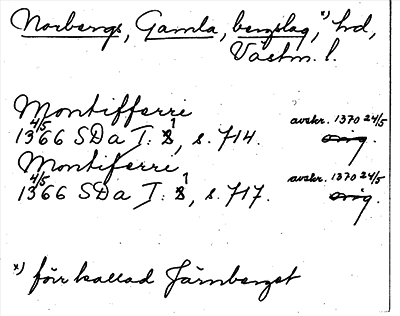 Norbergs, Gamla, bergslag,ˣ⁾ hd,
Vastm. l.
Montifferri
1366 4/5 SDa I: 1, s. 714. avskr. 1370 24/5 orig.
Montiferri
1366 4/5 SDa I: 1, s. 717. avskr. 1370 24/5 orig.
x) förr kallad Järnberget